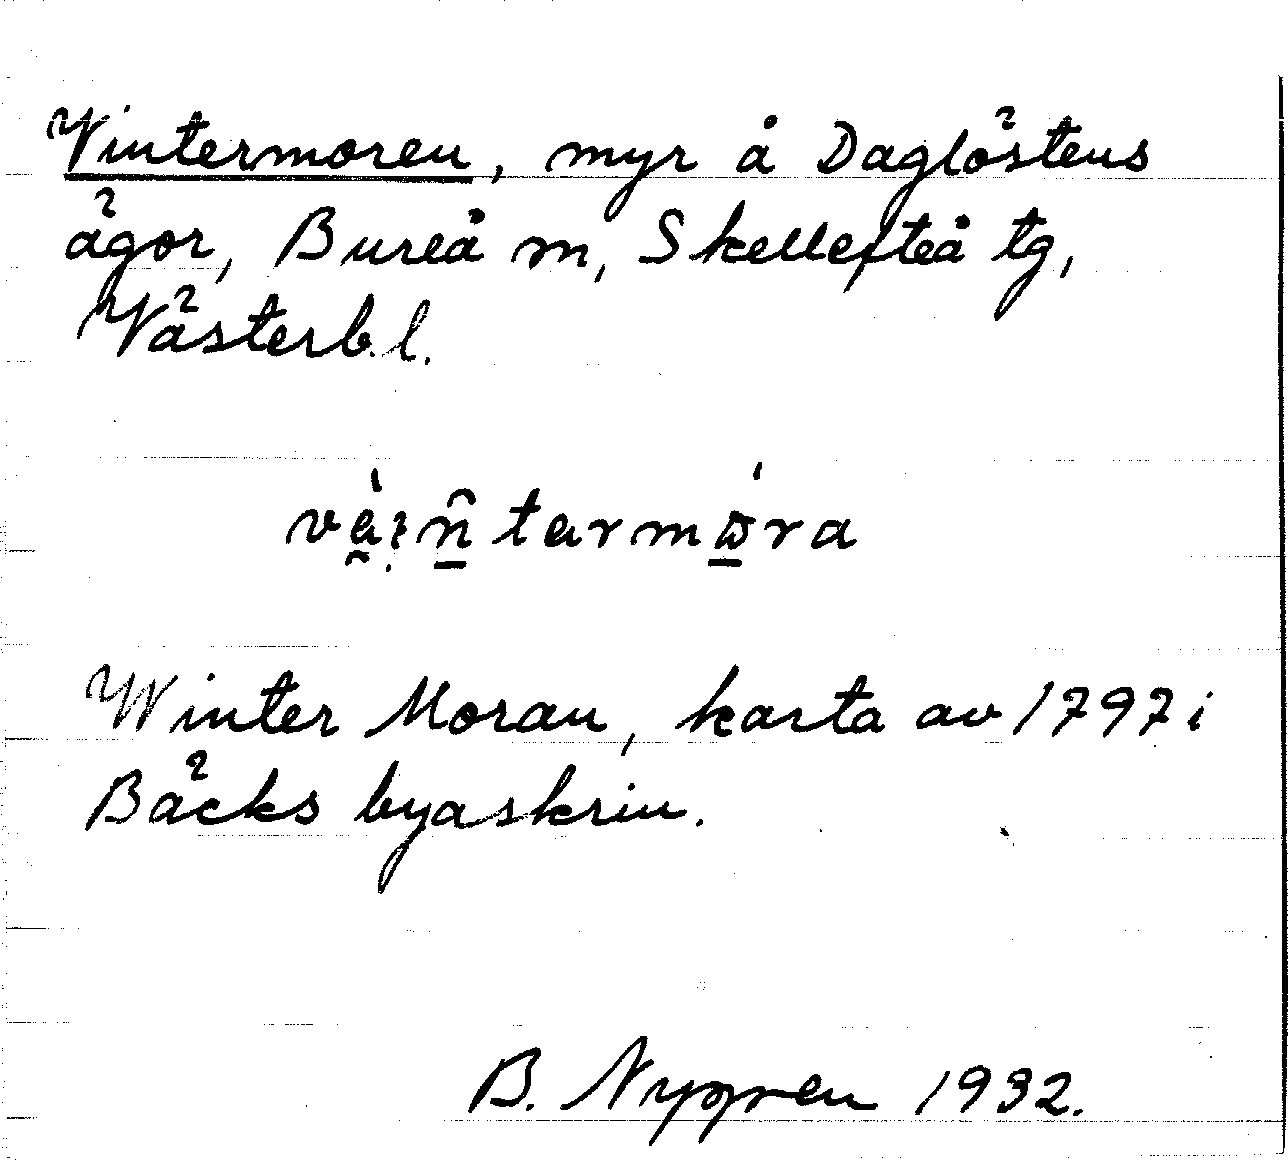 Vintermoren, myr å Daglöstens
ägor, Bureå m, Skellefteå tg,
Västerb. l.
Winter Moran, karta av 1797 i
Bäcks byaskrin.
B. Nygren 1932.